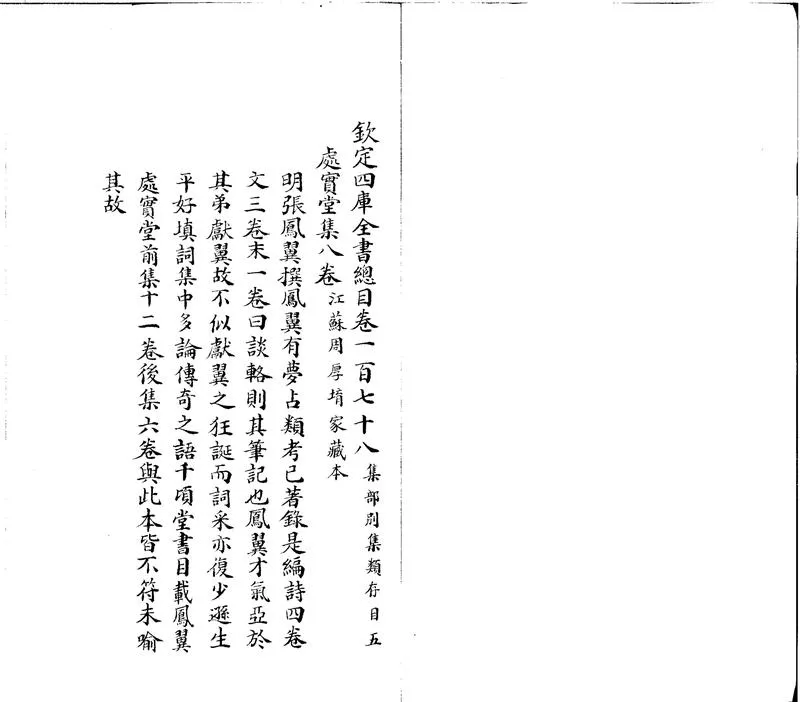 欽定四庫全書總目卷一百七十八集部別集類存目五
處實堂集八卷江蘇周厚堉家藏本
明張鳳翼撰鳳翼有夢占類考已著錄是編詩四卷
文三卷末一卷曰談輅則其筆記也鳳翼才氣亞於
其弟獻翼故不似獻翼之狂誕而詞采亦復少遜生
平好填詞集中多論傳奇之語千頃堂書目載鳳翼
處實堂前集十二卷後集六卷與此本皆不符未喻
其故